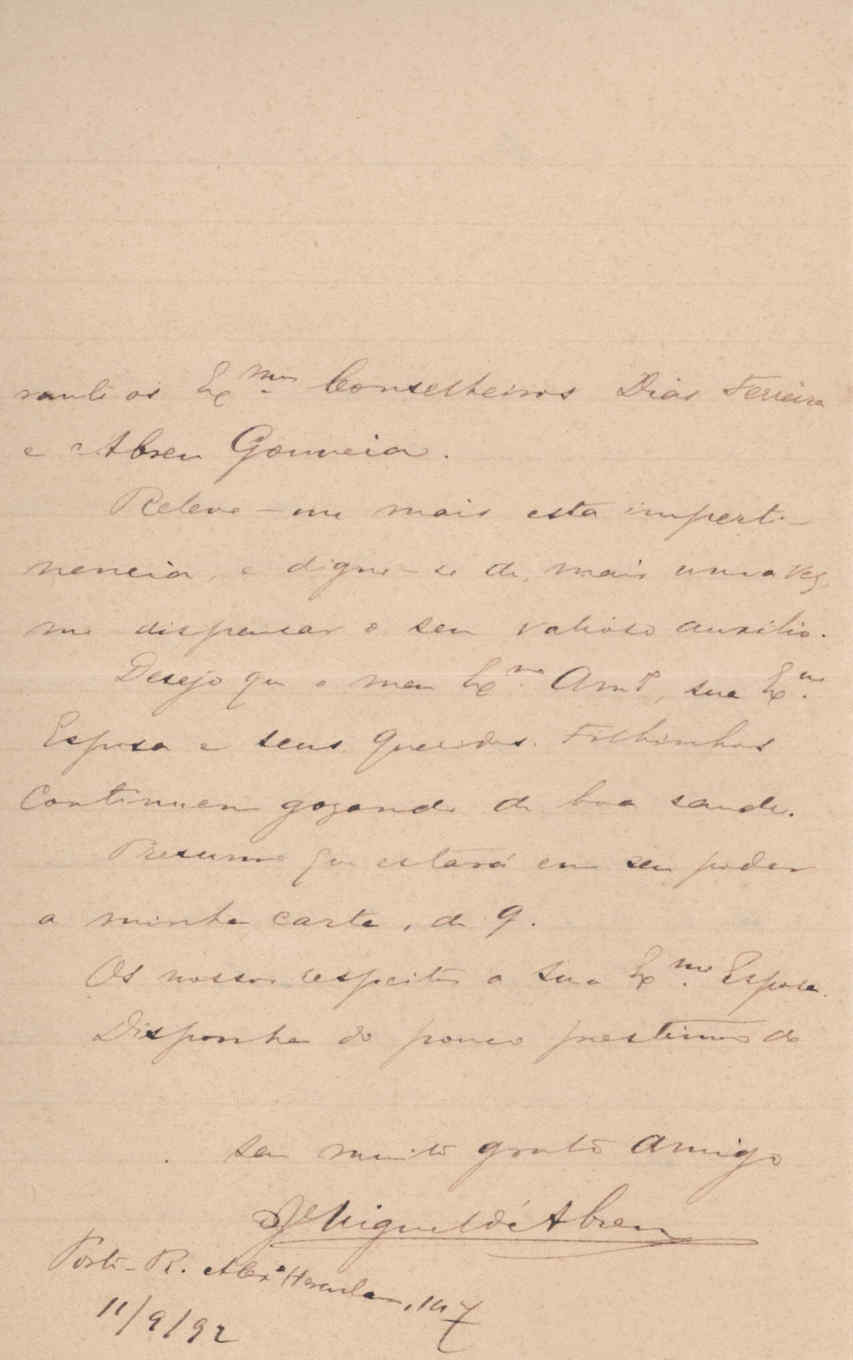 rante os Ex.mos Conselheiros Dias Ferreira
e Abreu Gouveia.
Releve-me mais esta imperti-
nencia, e digne-se de, mais uma vez,
me dispensar o seu valioso auxilio.
Desejo que o meu Ex.mo Amº, sua Ex.ma
Esposa e seus queridos Filhinhos
continuem gozando de boa saude.
Presumo que estará em seu poder
a minha carta, de 9.
Os nossos respeitos a sua Ex.ma Esposa.
Disponha do pouco prestimo do
seu muito grato amigo
Miguel d'Abreu
Porto - R. Alex.e Herculano, 147
11/9/92